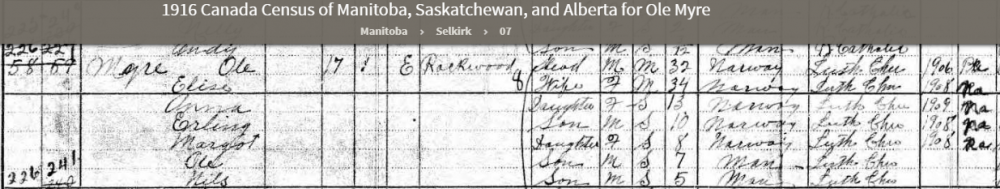 1916 Canada Census of Manitoba, Saskatchewan, and Alberta for Ole Myre
Manitoba › Selkirk › 07
Son M S 12 Man
58 57 Myre Ole 17 1 E Rockwood Head M M 32 Norway Luth Chu 1906
Elise 8 Wife F M 34 Norway Luth Chu 1908 Na
Anna Daughter F S 13 Norway Luth Chu 1909 Na
Erling Son M S 10 Norway Luth Chu 1908 Na
Margot Daughter F S 8 Norway Luth Chu 1908
Ole Son M S 7 Man Luth Chu
226 241 Nils Son M S 5 Man Luth Chu